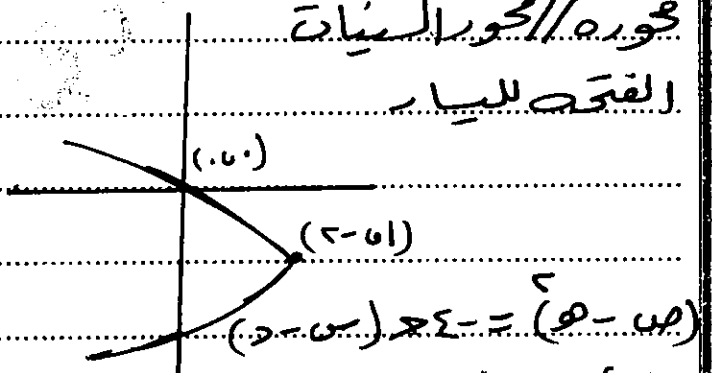 محوره // محور السينات
الفتحه لليسار
(٠،٠)
(١، -٢)
(ص - هـ)² = -٤جـ (س - د)